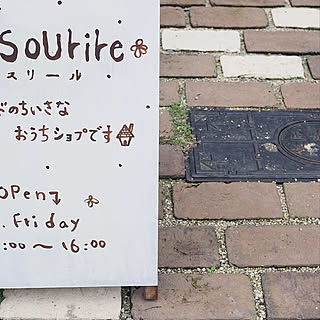 Sourire
スリール
どのちいさな
おうちショップです
OPEN
. Friday
:00〜16:00